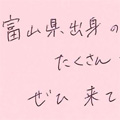 富山県出身の
たくさん
ぜひ来て